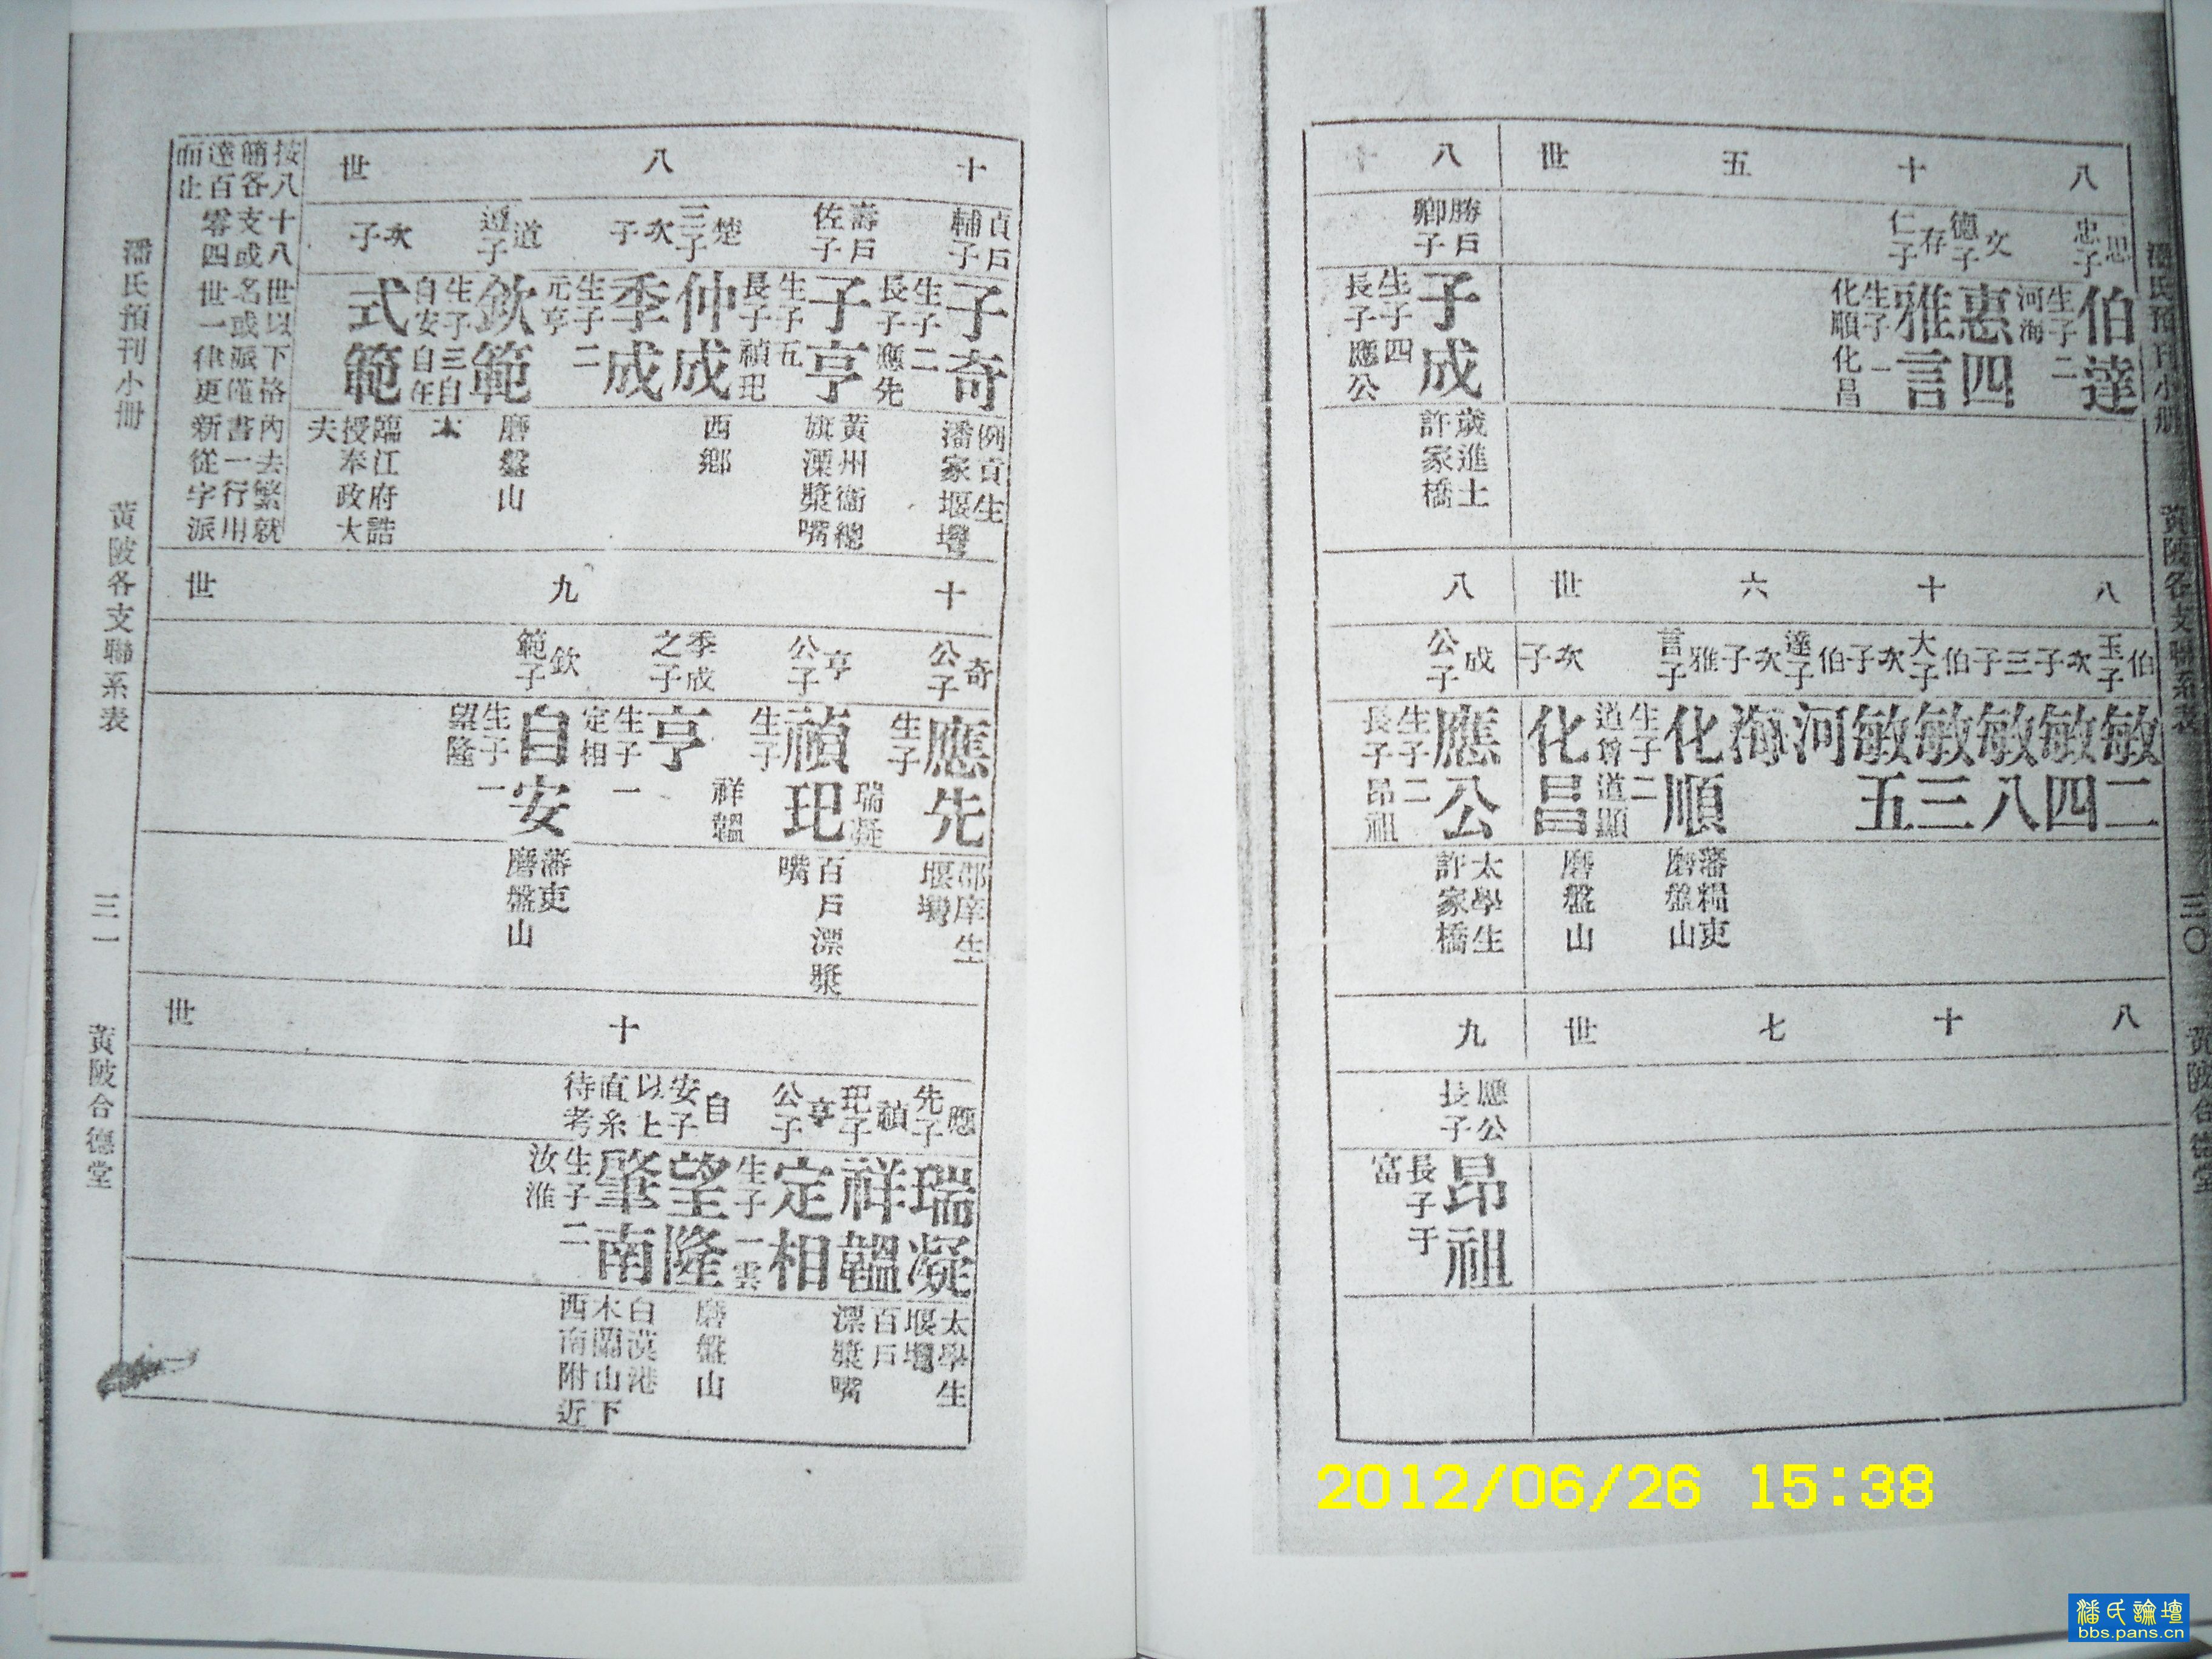 潘氏預刊小册 黃陂各支聯系表 三〇 黃陂合德堂
八十五世
思忠子
伯達
生子二
河海
文德子
惠四
存仁子
雅言
生子一
化順化昌
八十
勝戶
卿子
子成
生子四
長子應公
歲進士
許家橋
八十六世
伯玉子
敏二
次子
敏四
三子
敏八
伯大子
敏三
次子
敏五
伯達子
河
次子
海
雅言子
化順
生子二
道曾道顯
藩糧吏
磨盤山
次子
化昌
磨盤山
八
成公子
應公
生子二
長子昂祖
太學生
許家橋
八十七世
九
應公
長子
昂祖
長子于
富
十八世
貞戶
輔子
子奇
生子二
長子應先
例貢生
潘家堰壪
壽戶
佐子
子亨
生子五
長子禎玘
黃州衞總
旗溧漿嘴
楚三子
仲成
西鄉
次子
季成
生子二
元亨
道遵子
欽範
生子三自
自安自任
磨盤山
次子
式範
臨江府誥
授奉政大
夫
按八十八世以下格內去繁就
簡各支或名或派僅書一行用
達百零四世一律更新從字派
而止
十九世
奇公子
應先
生子
瑞凝
邵庠生
堰壪
亨公子
禎玘
生子
祥韞
百戶漂漿
嘴
季成
之子
亨
生子一
定相
欽範子
自安
生子一
望隆
藩吏
磨盤山
十世
應先子
瑞凝
太學生
堰壪
禎玘子
祥韞
百戶
漂漿嘴
亨公子
定相
生子一雲
自安子
望隆
磨盤山
以上
直系
待考
肇南
生子二
汝淮
白漠港
木蘭山下
西南附近
潘氏預刊小冊 黃陂各支聯系表 三一 黃陂合德堂
2012/06/26 15:38
潘氏論壇
bbs.pans.cn